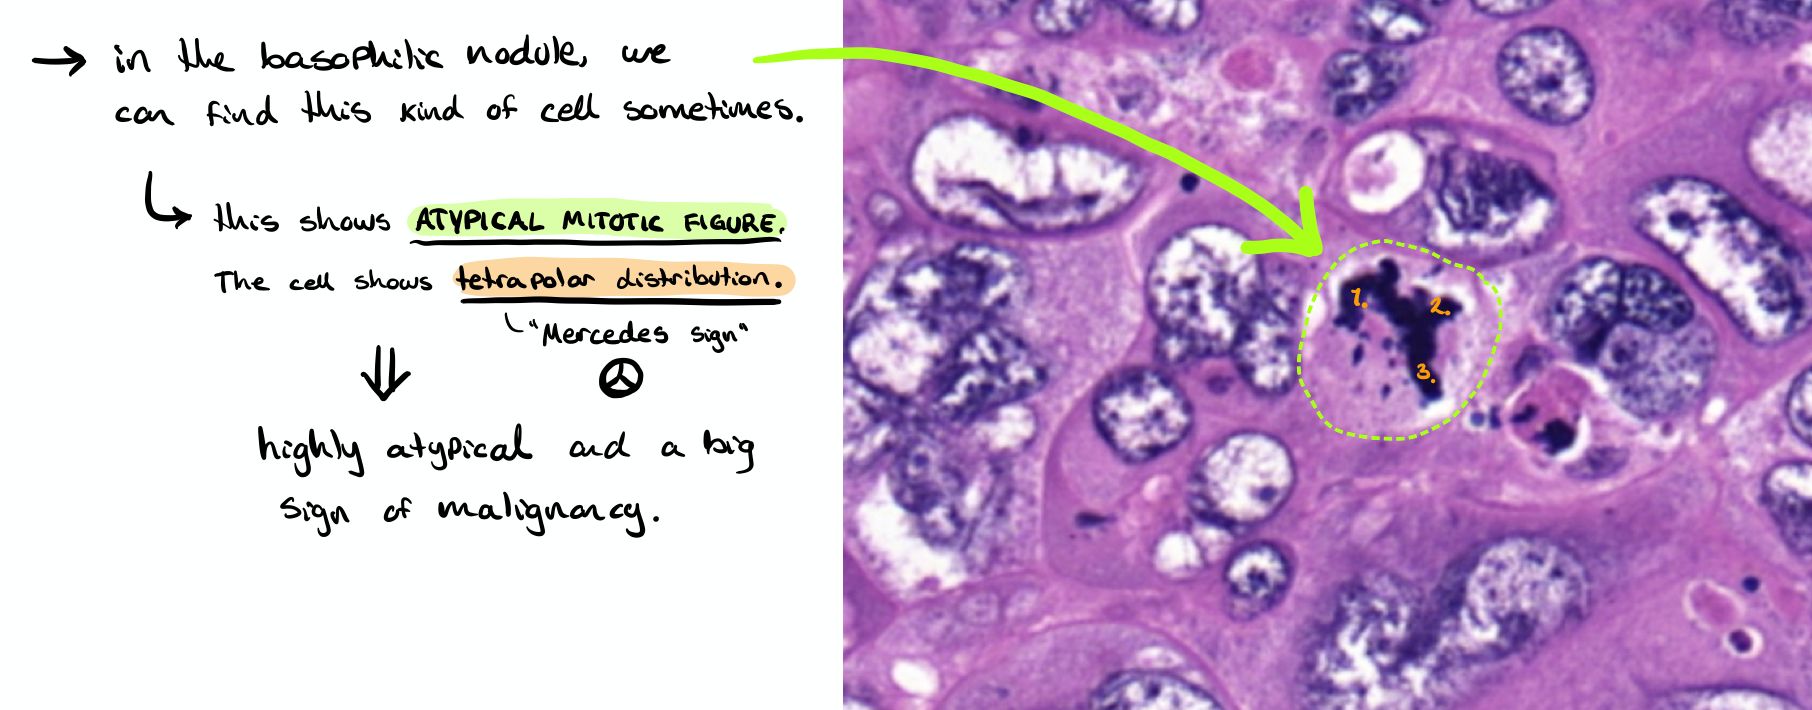 → in the basophilic nodule, we
can find this kind of cell sometimes.
this shows ATYPICAL MITOTIC FIGURE.
The cell shows tetrapolar distribution.
"Mercedes sign"
highly atypical and a big
sign of malignancy.
1.
2.
3.